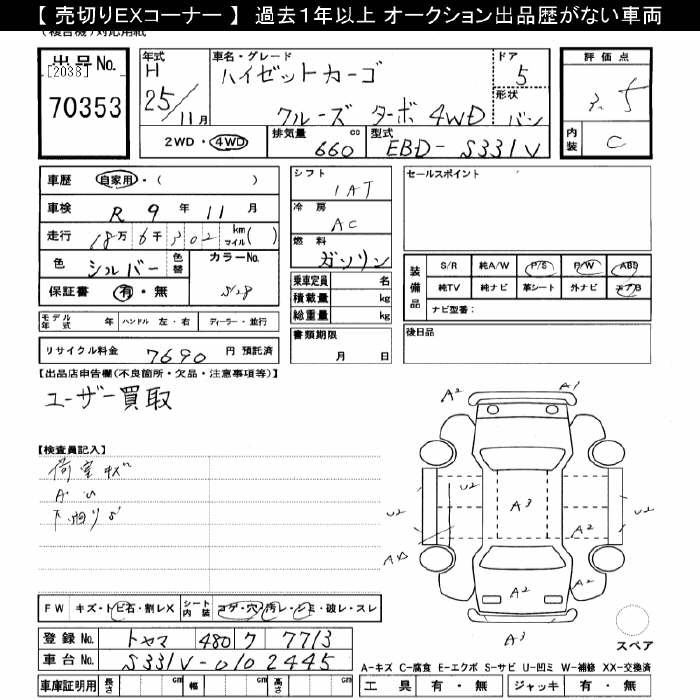 【 売切りEXコーナー 】 過去１年以上 オークション出品歴がない車両
(複合機)対応用紙
出品No.
[2038]
70353
年式
H
25/11月
車名・グレード
ハイゼットカーゴ
クルーズ ターボ 4WD
ドア
5
形状
バン
評価点
3.5
内装
C
2WD・4WD
排気量
660
cc
型式
EBD-S331V
車歴
自家用・( )
車検
R 9 年 11 月
走行
18万 6千 302 km マイル( )
色
シルバー
色替
カラーNo.
S28
保証書
有・無
モデル年式 年
ハンドル 左・右
ディーラー・並行
リサイクル料金 7690 円 預託済
シフト
IAT
冷房
AC
燃料
ガソリン
乗車定員 名
積載量 kg
総重量 kg
書類期限
月 日
セールスポイント
装備品
S/R 純A/W P/S P/W ABS
純TV 純ナビ 革シート 外ナビ エアB
ナビ型番:
後日品
【出品店申告欄(不良箇所・欠品・注意事項等)】
ユーザー買取
【検査員記入】
荷室キズ
AU
下廻りS
A2
A1
A2
U2
U2
A3
U2
A2
A2
A2
A3
FW キズ・トビ石・割レX
シート内装 コゲ・穴・汚レ・シミ・破レ・スレ
登録No. トヤマ 480 ク 7713
車台No. S331V-0102445
スペア
A-キズ C-腐食 E-エクボ S-サビ U-凹ミ W-補修 XX-交換済
車庫証明用 長さ cm 幅 cm 高さ cm
工具 有・無 ジャッキ 有・無